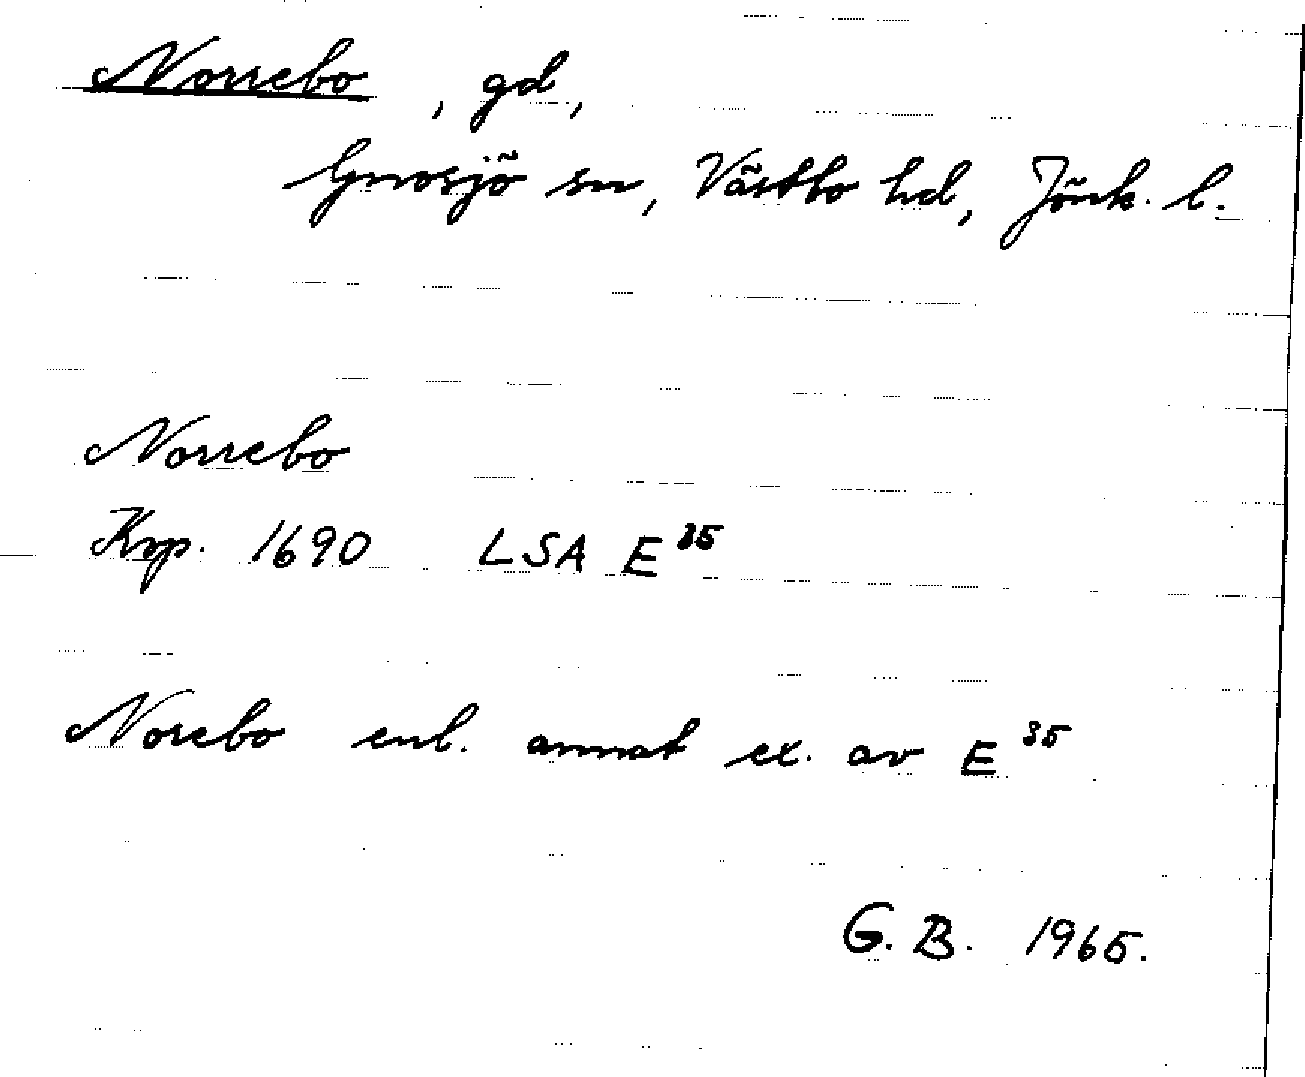 Norrebo, gd,
Gnosjö sn, Västbo hd, Jönk. l.
Norrebo
Krp. 1690 LSA E³⁵
Norebo enl. annat ex. av E³⁵
G. B. 1965.